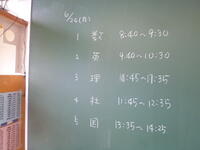 6/26(月)
1 数 8:40~9:30
2 英 9:40~10:30
3 理 10:45~11:35
4 社 11:45~12:35
5 国 13:35~14:25